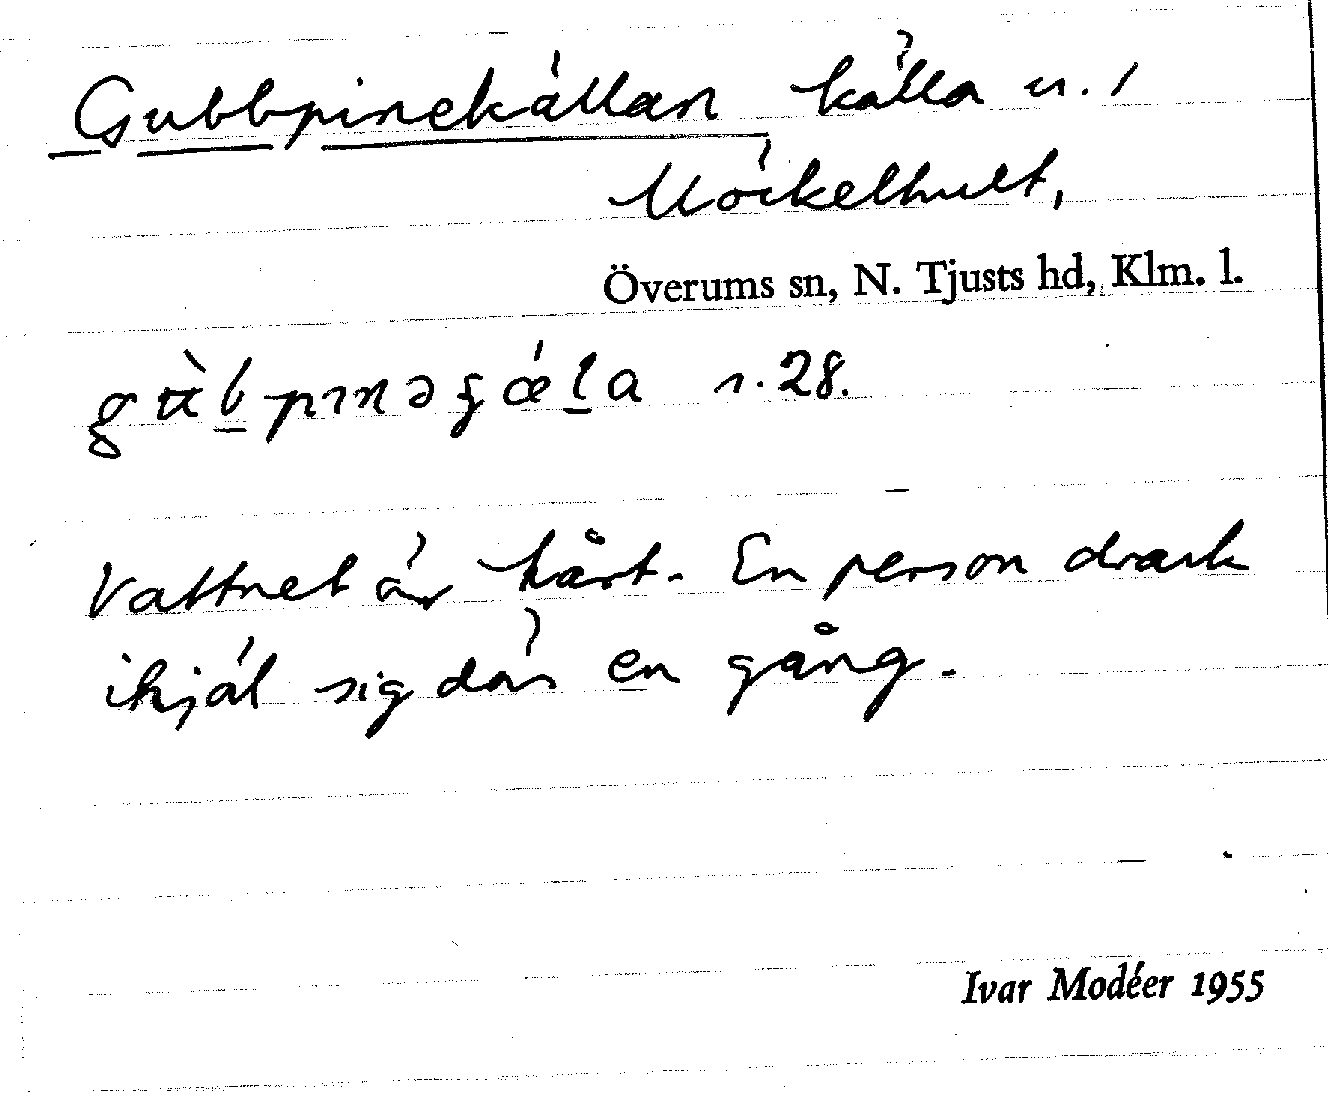 Gubbpinekällan källa n. /
Möckelhult,
Överums sn, N. Tjusts hd, Klm. l.
s. 28.
Vattnet är hårt. En person drack
ihjäl sig där en gång.
Ivar Modéer 1955